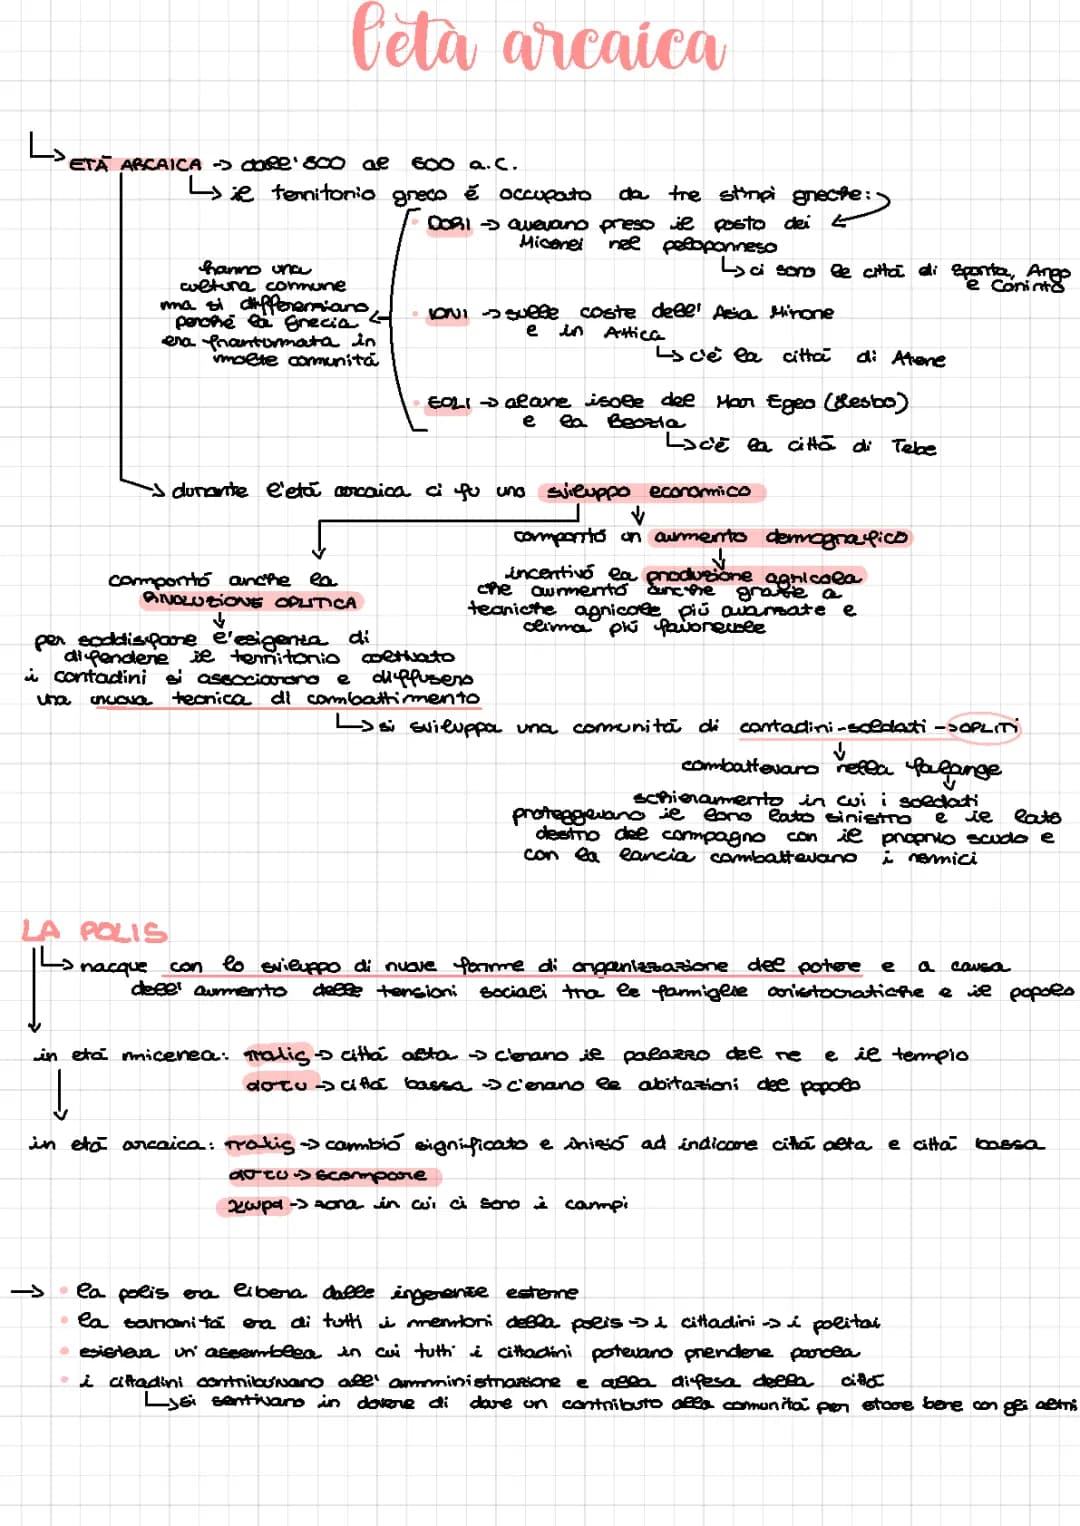 l'età arcaica
ETÀ ARCAICA → dall'800 al 600 a.C.
il territorio greco è occupato da tre stirpi greche:
DORI → avevano preso il posto dei
Micenei nel peloponneso
ci sono le città di Sparta, Argo
e Corinto
hanno una
cultura comune
ma si differenziano
perché la Grecia
era frantumata in
molte comunità
IONI → sulle coste dell'Asia Minore
e in Attica
c'è la città di Atene
EOLI → alcune isole del Mar Egeo (Lesbo)
e la Beozia
c'è la città di Tebe
durante l'età arcaica ci fu uno sviluppo economico
comportò un aumento demografico
incentivò la produzione agricola
che aumentò anche grazie a
tecniche agricole più avanzate e
clima più favorevole
comportò anche la
RIVOLUZIONE OPLITICA
per soddisfare l'esigenza di
difendere il territorio coltivato
i contadini si associarono e diffusero
una nuova tecnica di combattimento
si sviluppa una comunità di contadini-soldati → OPLITI
combattevano nella falange
schieramento in cui i soldati
proteggevano il loro lato sinistro e il lato
destro del compagno con il proprio scudo e
con la lancia combattevano i nemici
LA POLIS
nacque con lo sviluppo di nuove forme di organizzazione del potere e a causa
dell'aumento delle tensioni sociali tra le famiglie aristocratiche e il popolo
in età micenea: πολις → città alta → c'erano il palazzo del re e il tempio
αστυ → città bassa → c'erano le abitazioni del popolo
in età arcaica: πολις → cambiò significato e iniziò ad indicare città alta e città bassa
αστυ → scompare
χωρα → zona in cui ci sono i campi
→ • la polis era libera dalle ingerenze esterne
• la sovranità era di tutti i membri della polis → i cittadini → i politai
• esisteva un'assemblea in cui tutti i cittadini potevano prendere parola
• i cittadini contribuivano all'amministrazione e alla difesa della città
si sentivano in dovere di dare un contributo alla comunità per stare bene con gli altri